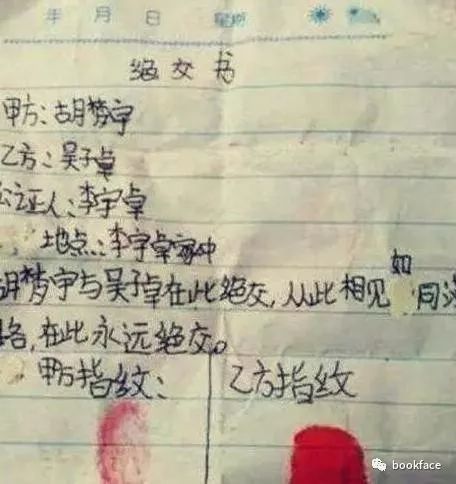 年 月 日 星期
绝交书
甲方:胡梦宇
乙方:吴子卓
公证人:李宇卓
地点:李宇卓家中
胡梦宇与吴子卓在此绝交,从此相见如同没
路,在此永远绝交。
甲方指纹: 乙方指纹
bookface